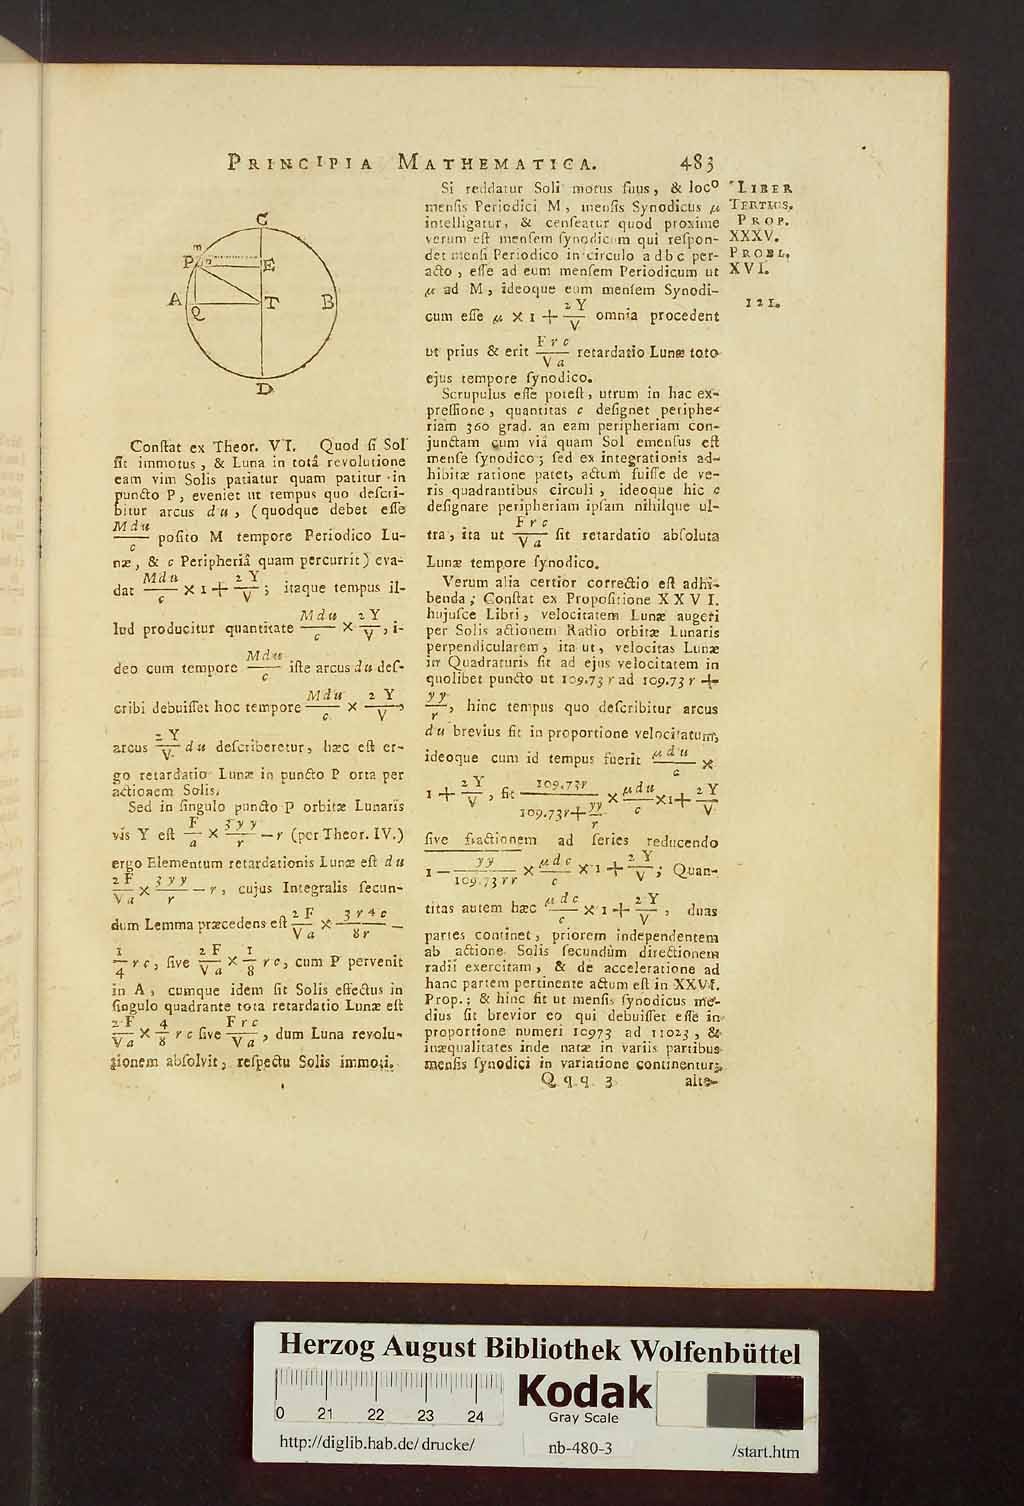 PRINCIPIA MATHEMATICA. 483
C
m
P n E
A Q T B
D
Conſtat ex Theor. VI. Quod ſi Sol
ſit immotus, & Luna in totâ revolutione
eam vim Solis patiatur quam patitur in
puncto P, eveniet ut tempus quo deſcri-
bitur arcus du, (quodque debet eſſe
Mdu/c poſito M tempore Periodico Lu-
næ, & c Peripheriâ quam percurrit) eva-
dat Mdu/c × 1 + 2Y/V; itaque tempus il-
lud producitur quantitate Mdu/c × 2Y/V, i-
deo cum tempore Mdu/c iſte arcus du deſ-
cribi debuiſſet hoc tempore Mdu/c × 2Y/V,
arcus 2Y/V du deſcriberetur, hæc eſt er-
go retardatio Lunæ in puncto P orta per
actionem Solis.
Sed in ſingulo puncto P orbitæ Lunaris
vis Y eſt F/a × 3yy/r — r (per Theor. IV.)
ergo Elementum retardationis Lunæ eſt du
2F/Va × 3yy/r — r, cujus Integralis ſecun-
dum Lemma præcedens eſt 2F/Va × 3r4c/8r —
1/4 rc, ſive 2F/Va × 1/8 rc, cum P pervenit
in A, cumque idem ſit Solis effectus in
ſingulo quadrante tota retardatio Lunæ eſt
2F/Va × 4/8 rc ſive Frc/Va, dum Luna revolu-
tionem abſolvit, reſpectu Solis immoti.
Si reddatur Soli motus ſuus, & loco
menſis Periodici M, menſis Synodicus μ
intelligatur, & cenſeatur quod proxime
verum eſt menſem ſynodicum qui reſpon-
det menſi Periodico in circulo adbc per-
acto, eſſe ad eum menſem Periodicum ut
μ ad M, ideoque eum menſem Synodi-
cum eſſe μ × 1 + 2Y/V omnia procedent
ut prius & erit Frc/Va retardatio Lunæ toto
ejus tempore ſynodico.
Scrupulus eſſe poteſt, utrum in hac ex-
preſſione, quantitas c deſignet periphe-
riam 360 grad. an eam peripheriam con-
junctam cum viâ quam Sol emenſus eſt
menſe ſynodico; ſed ex integrationis ad-
hibitæ ratione patet, actum fuiſſe de ve-
ris quadrantibus circuli, ideoque hic c
deſignare peripheriam ipſam nihilque ul-
tra, ita ut Frc/Va ſit retardatio abſoluta
Lunæ tempore ſynodico.
Verum alia certior correctio eſt adhi-
benda; Conſtat ex Propoſitione XXVI.
hujuſce Libri, velocitatem Lunæ augeri
per Solis actionem Radio orbitæ Lunaris
perpendicularem, ita ut, velocitas Lunæ
in Quadraturis ſit ad ejus velocitatem in
quolibet puncto ut 109.73 r ad 109.73 r +
yy/r, hinc tempus quo deſcribitur arcus
du brevius ſit in proportione velocitatum,
ideoque cum id tempus fuerit μdu/c ×
1 + 2Y/V, fit 109.73r/109.73r+yy/r × μdu/c × 1 + 2Y/V
ſive fractionem ad ſeries reducendo
1 — yy/109.73rr × μdc/c × 1 + 2Y/V; Quan-
titas autem hæc μdc/c × 1 + 2Y/V, duas
partes continet, priorem independentem
ab actione Solis ſecundùm directionem
radii exercitam, & de acceleratione ad
hanc partem pertinente actum eſt in XXVI.
Prop.; & hinc fit ut menſis ſynodicus me-
dius ſit brevior eo qui debuiſſet eſſe in
proportione numeri 10973 ad 11023, &
inæqualitates inde natæ in variis partibus
menſis ſynodici in variatione continentur;
Qqq 3 alte-
LIBER
TERTIUS.
PROP.
XXXV.
PROBL.
XVI.
121.
Herzog August Bibliothek Wolfenbüttel
0 21 22 23 24
Kodak
Gray Scale
http://diglib.hab.de/drucke/ nb-480-3 /start.htm